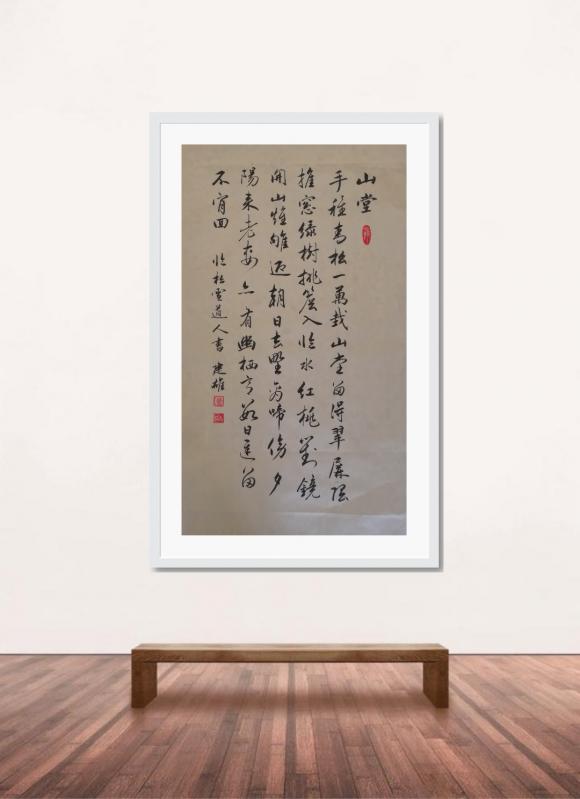 山堂
手種青松一萬栽山堂留得翠屏隈
推窗綠樹排簷入臨水紅桃對鏡
開山雉雊迎朝日去野禽啼傍夕
陽來老妻亦有幽栖意數日遲留
不肯回 臨松雪道人書 建雄